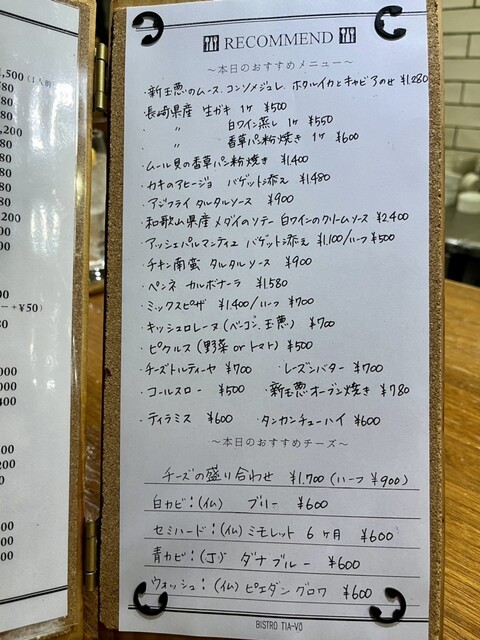 ,500(1人前)
80
80
,200
80
80
80
80
80
00
ー+¥50)
00
00
400
00
200
00
00
00
00
RECOMMEND
～本日のおすすめメニュー～
・新玉葱のムース、コンソメジュレ、ホタルイカとキャビアのせ ¥1,280
・長崎県産 生ガキ 1ケ ¥500
〃 白ワイン蒸し 1ケ ¥550
〃 香草パン粉焼き 1ケ ¥600
・ムール貝の香草パン粉焼き ¥1,400
・カキのアヒージョ バゲット添え ¥1,480
・アジフライ タルタルソース ¥900
・和歌山県産 メダイのソテー 白ワインのクリームソース ¥2,400
・アッシェパルマンティエ バゲット添え ¥1,100/ハーフ ¥500
・チキン南蛮 タルタルソース ¥900
・ペンネ カルボナーラ ¥1,580
・ミックスピザ ¥1,400/ハーフ ¥700
・キッシュロレーヌ(ベーコン、玉葱) ¥700
・ピクルス(野菜 or トマト) ¥500
・チーズトルティーヤ ¥700 ・レーズンバター ¥700
・コールスロー ¥500 ・新玉葱オーブン焼き ¥780
・ティラミス ¥600 ・タンカンチューハイ ¥600
～本日のおすすめチーズ～
チーズの盛り合わせ ¥1,700(ハーフ ¥900)
白カビ:(仏) ブリー ¥600
セミハード:(仏)ミモレット 6ヶ月 ¥600
青カビ:(丁) ダナブルー ¥600
ウォッシュ:(仏)ピエダングロワ ¥600
BISTRO TIA-VÖ